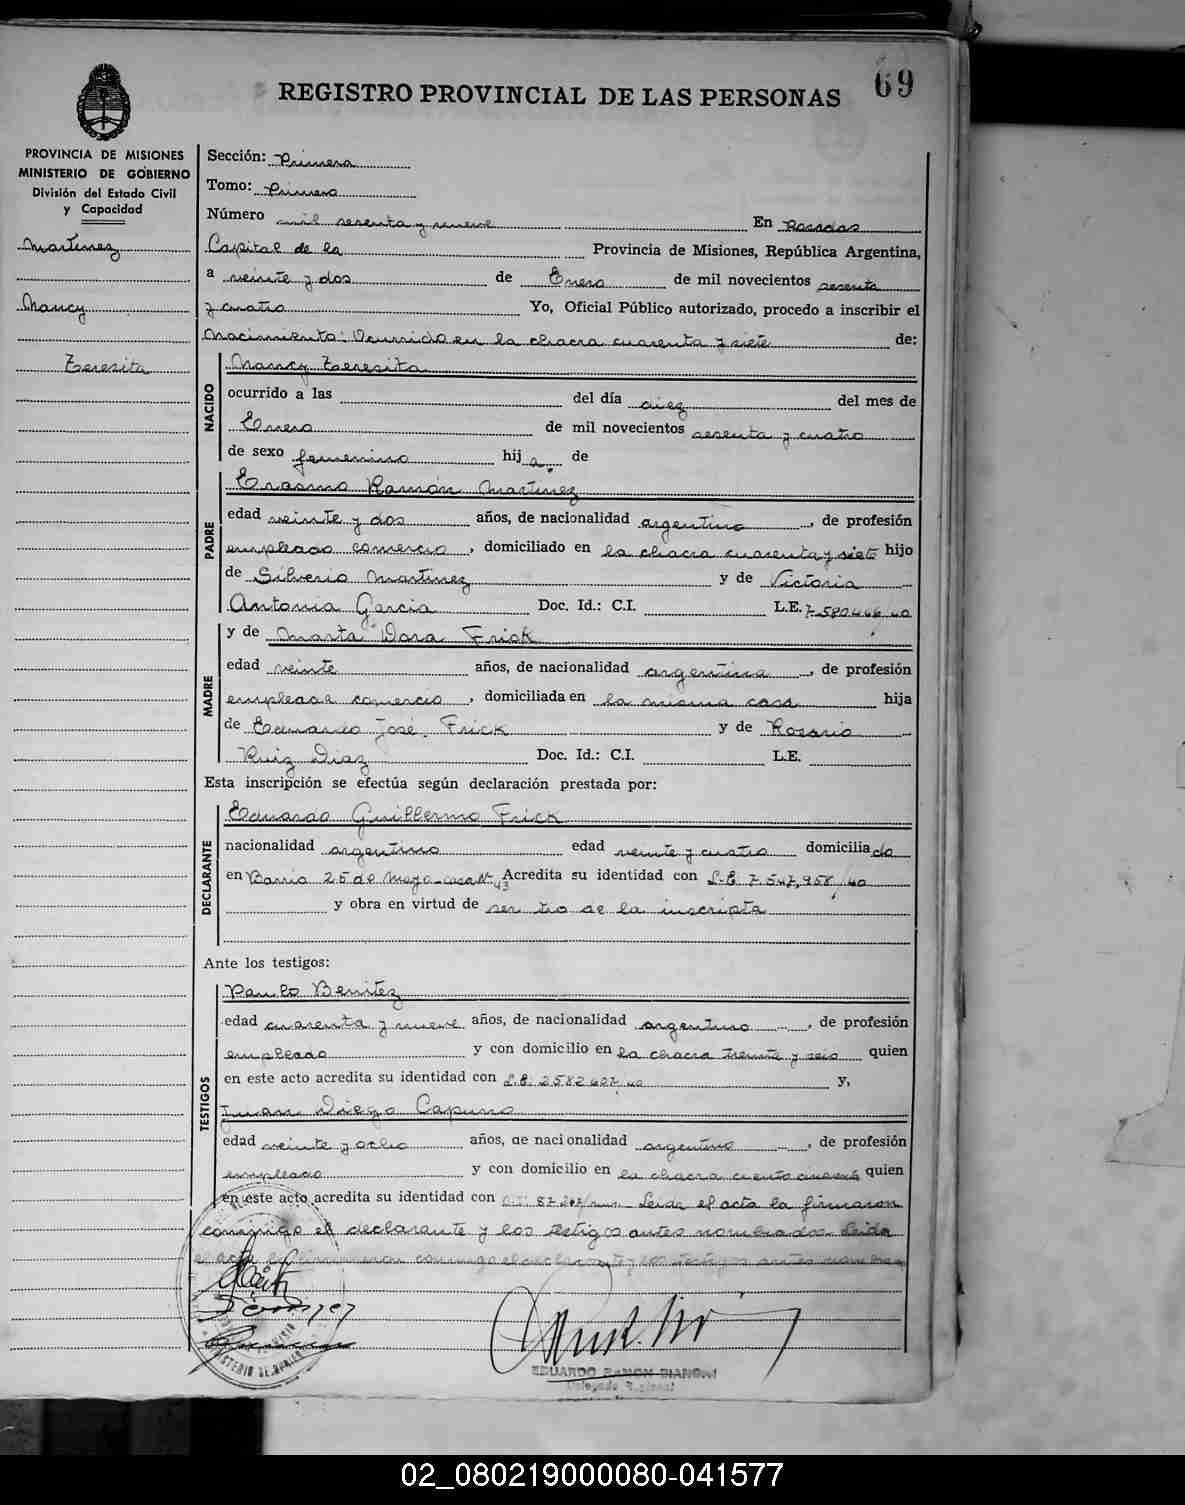 69
REGISTRO PROVINCIAL DE LAS PERSONAS
PROVINCIA DE MISIONES
MINISTERIO DE GOBIERNO
División del Estado Civil
y Capacidad
Martinez
Nancy
Teresita
Sección: Primera
Tomo: Primero
Número mil sesenta y nueve En Posadas
Capital de la Provincia de Misiones, República Argentina,
a veinte y dos de Enero de mil novecientos sesenta
y cuatro Yo, Oficial Público autorizado, procedo a inscribir el
Nacimiento: Ocurrido en la chacra cuarenta y siete de:
NACIDO
Nancy Teresita
ocurrido a las del día diez del mes de
Enero de mil novecientos sesenta y cuatro
de sexo femenino hija de
PADRE
Erasmo Ramón Martinez
edad veinte y dos años, de nacionalidad argentino, de profesión
empleado comercio, domiciliado en la chacra cuarenta y siete hijo
de Silverio Martinez y de Victoria
Antonia Garcia Doc. Id.: C.I. L.E. 7.580.446/40
MADRE
y de Marta Dora Frick
edad veinte años, de nacionalidad argentina, de profesión
empleada comercio, domiciliada en la misma casa hija
de Eduardo José Frick y de Rosario
Ruiz Diaz Doc. Id.: C.I. L.E.
Esta inscripción se efectúa según declaración prestada por:
DECLARANTE
Eduardo Guillermo Frick
nacionalidad argentino edad veinte y cuatro domiciliado
en Barrio 25 de Mayo-casa Nº 43 Acredita su identidad con L.E. 7.547.958/40
y obra en virtud de ser tio de la inscripta
Ante los testigos:
TESTIGOS
Paulo Benitez
edad cuarenta y nueve años, de nacionalidad argentino, de profesión
empleado y con domicilio en la chacra treinta y seis quien
en este acto acredita su identidad con L.E. 2582607/40 y,
Juan Diego Capurro
edad veinte y ocho años, de nacionalidad argentino, de profesión
empleado y con domicilio en la chacra ciento cincuenta quien
en este acto acredita su identidad con C.I. Leida el acta la firmaron
conmigo el declarante y los testigos antes nombrados. Leida
el acta la firmaron conmigo el declarante y los testigos antes
EDUARDO RAMON BIANCHI
Delegado Regional
02_080219000080-041577